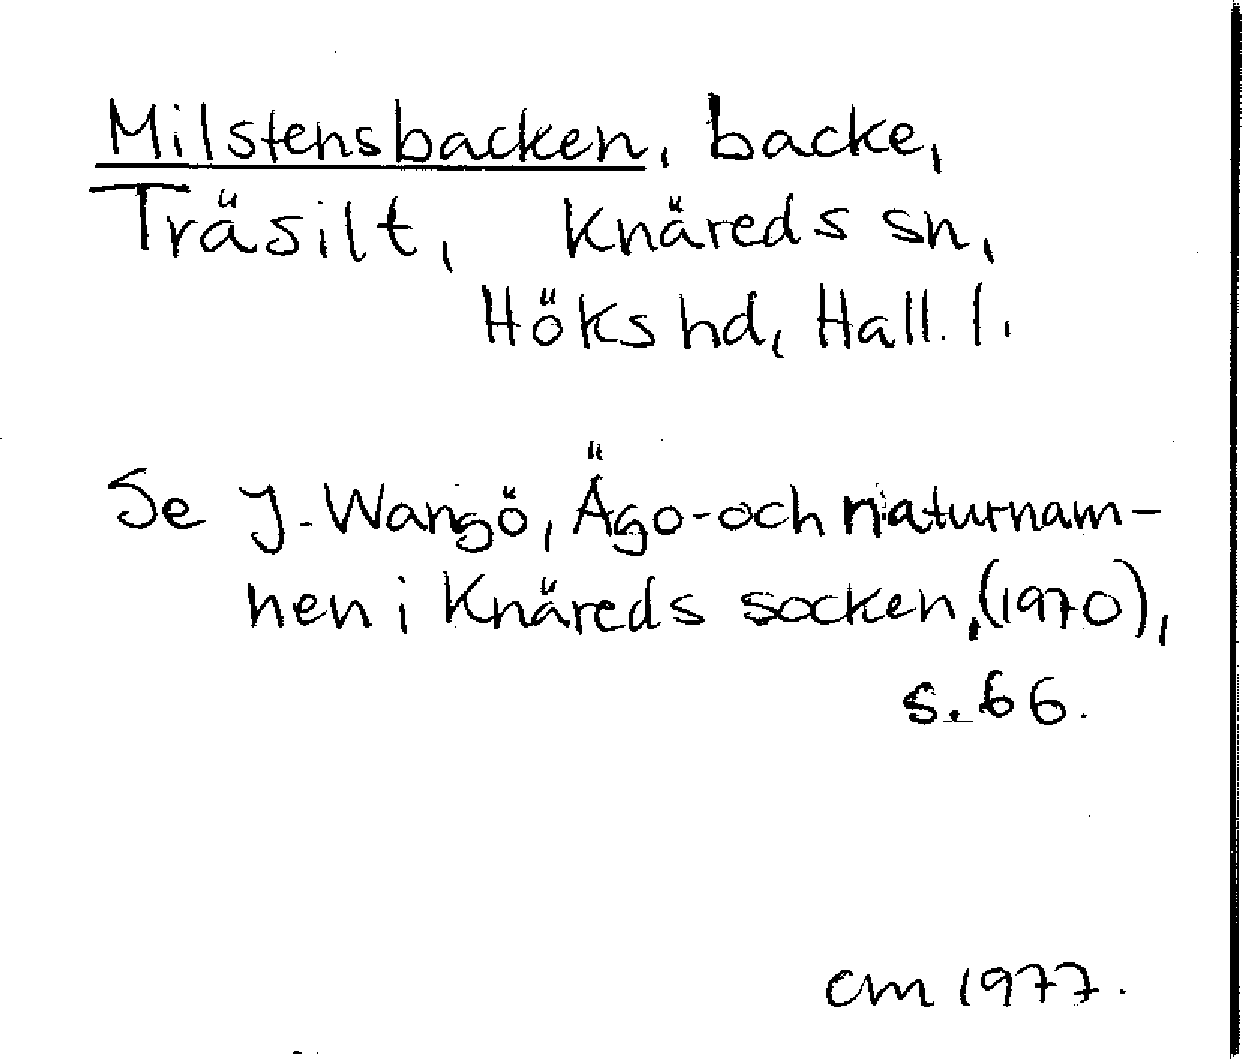 Milstensbacken, backe,
Träsilt, Knäreds sn,
Höks hd, Hall. l.
Se J. Wangö, Ägo- och naturnam-
nen i Knäreds socken, (1970),
s. 66.
CM 1977.